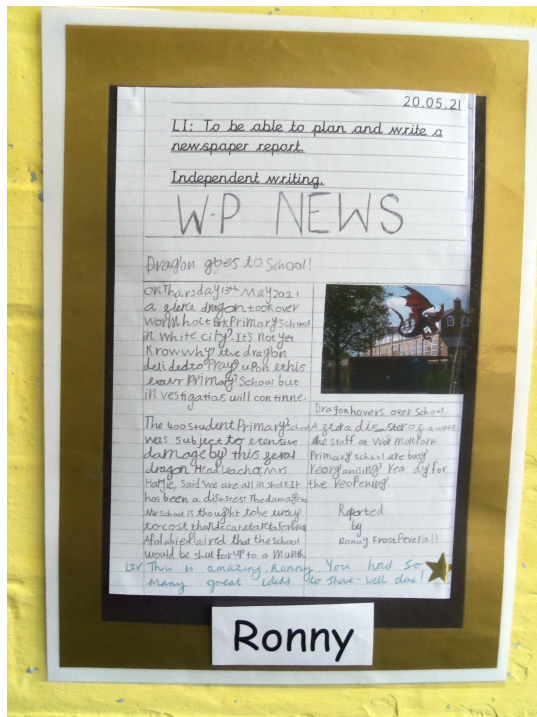 20.05.21
LI: To be able to plan and write a
newspaper report.
Independent writing.
W-P NEWS
Dragon goes to School!
on Thursday 13th May 2021
a dragon took over
Primary school
in white city. It's Not yet
Know why the dragon
to Pray upon
Primary School but
in vestigatios will continne.
The 400 student Primary school
was subject to etensive
damage by this
dragon Head teachor, Mrs
said we are all in shok It
has been a disastes! The damage to
the School is thought to be
to cost
that the school
would be shut for up to a Munth
Dragon hovers over School.
A disaster a week
the staff at Park
Primary school are busy
reorganising rea dy for
the reopening.
Reported
by
Ronny Frost
LIV This is amazing, Ronny. You had so
many great ideas to share - well done!
Ronny